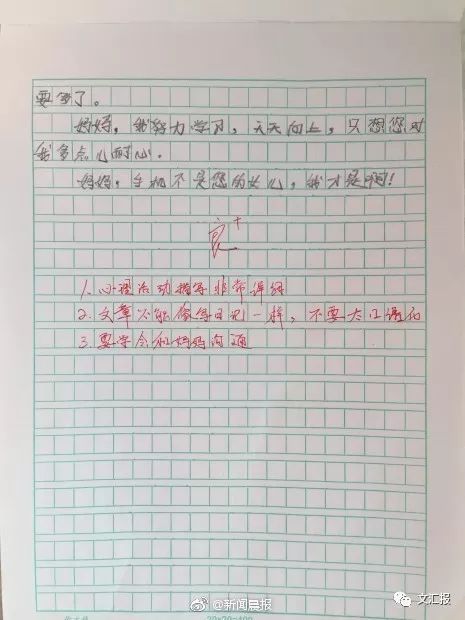 要多了。
妈妈，我努力学习，天天向上，只想您对
我多点儿耐心。
妈妈，手机不是您的女儿，我才是啊！
良+
1. 心理活动描写非常详细
2. 文章不能像写日记一样，不要太口语化
3. 要学会和妈妈沟通
@新闻晨报
文汇报
20×20=400